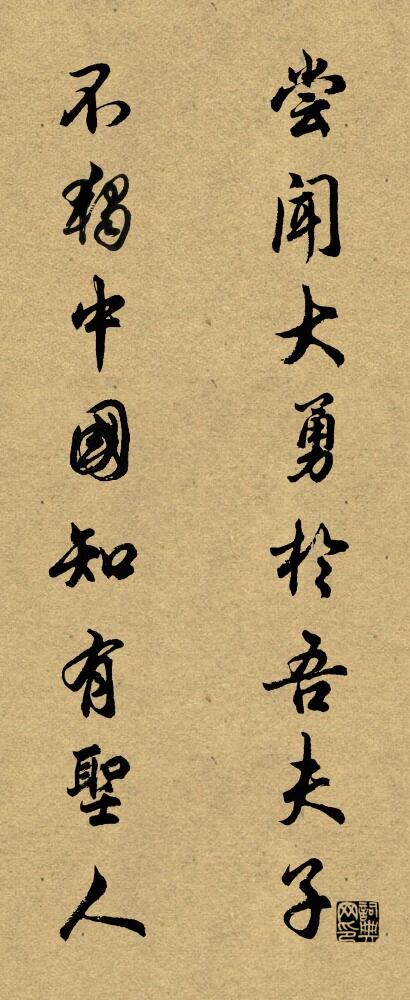 尝闻大勇於吾夫子
不独中國知有聖人
詞典网印